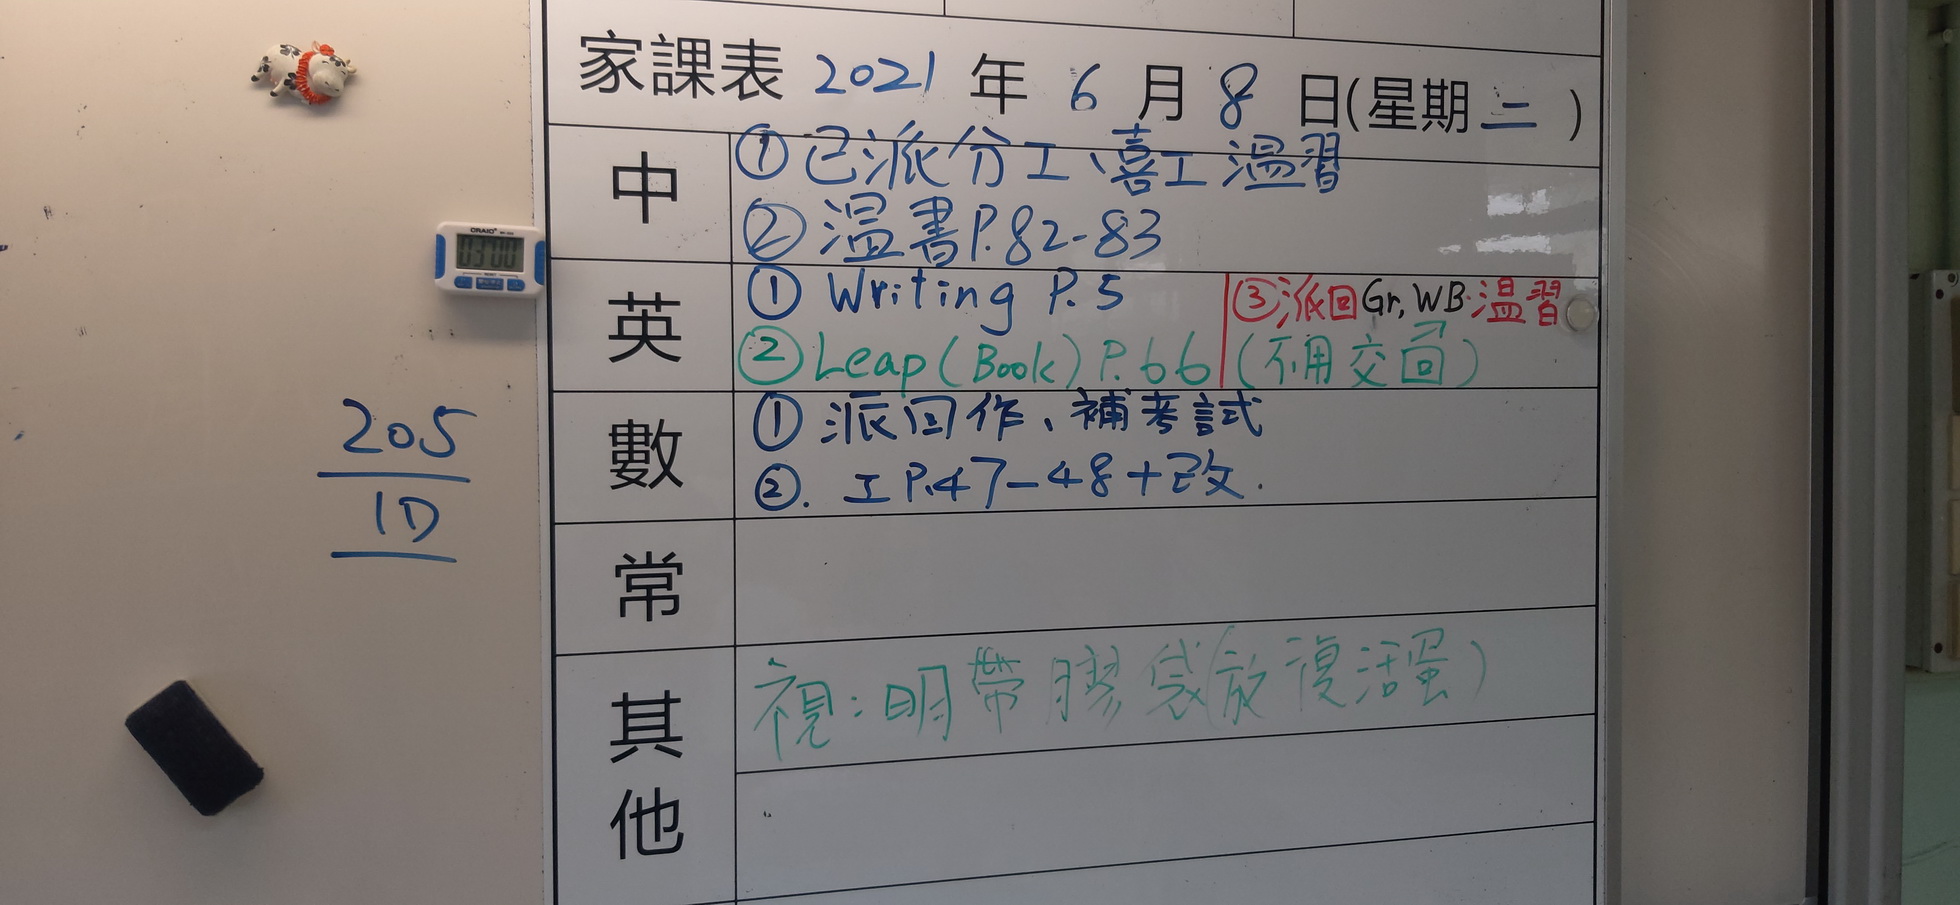 家課表 2021 年 6 月 8 日(星期二)
中
①已派分工、喜工溫習
②溫書P.82-83
英
① Writing P.5
②Leap (Book) P.66
③派回Gr, WB 溫習
(不用交回)
數
① 派回作、補考試
②. 工P.47-48+改.
常
其他
視:明帶膠袋(放復活蛋)
205
1D
CRAIO
0300